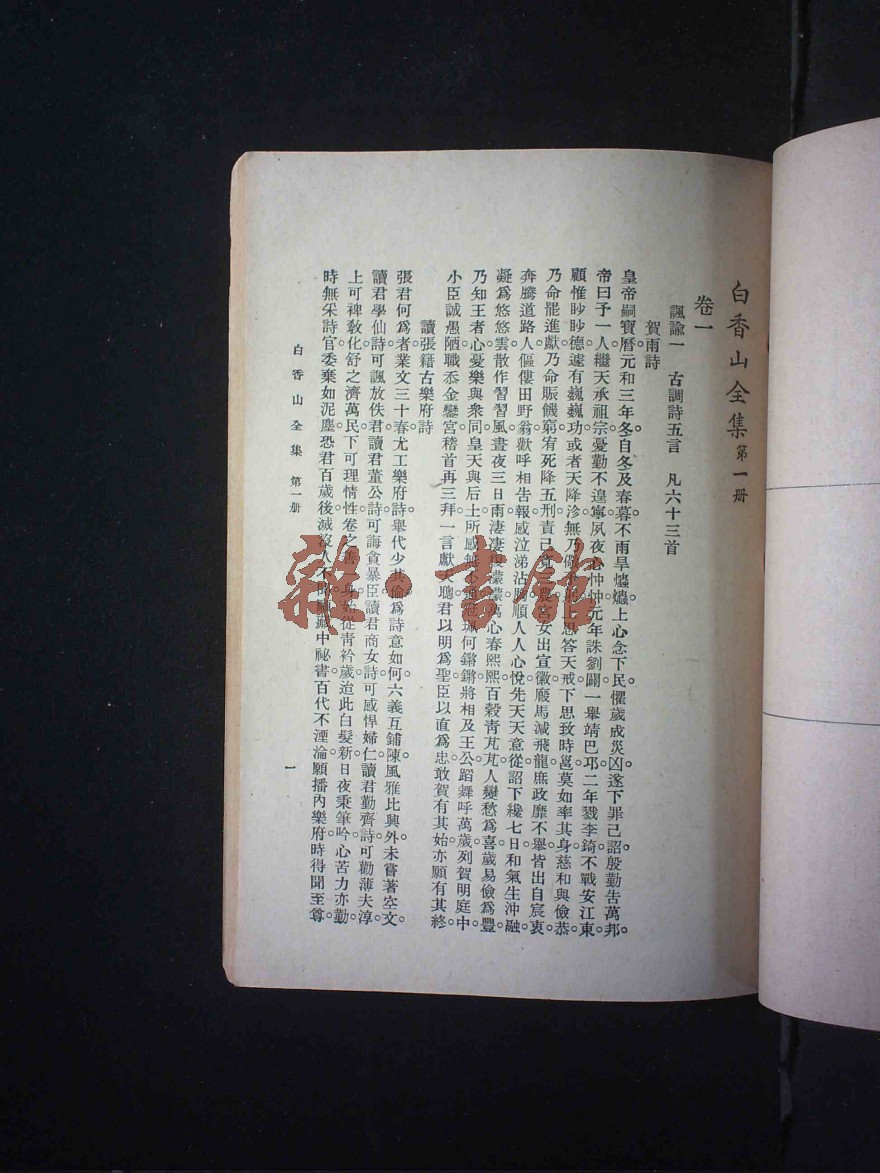 白香山全集 第一册
卷一
諷諭一 古調詩五言 凡六十三首
賀雨詩
皇帝嗣寶曆元和三年冬自冬及春暮不雨旱爞爞上心念下民懼歲成災凶遂下罪己詔殷勤吿萬邦
帝曰予一人繼天承祖宗憂勤不遑寧夙夜心忡忡元年誅劉闢一舉靖巴邛二年戮李錡不戰安江東
顧惟眇眇德遽有巍巍功或者天降沴無乃儆上思答天戒下思致時邕莫如率其身慈和與儉恭
乃命罷進獻乃命賑饑窮宥死降五刑責己農宮女出宣徽廄馬減飛龍庶政靡不舉皆出自宸衷
奔騰道路人傴僂田野翁歡呼相告報感泣涕沾胸順人人心悅先天天意從詔下纔七日和氣生沖融
凝爲悠悠雲散作習習風晝夜三日雨淒淒復濛濛萬心春熙熙百穀青芃芃人變愁爲喜歲易儉爲豐
乃知王者心憂樂與衆同皇天與后土所感無不珮何鏘鏘將相及王公蹈舞呼萬歲列賀明庭中
小臣誠愚陋職忝金鑾宮稽首再三拜一言獻天聰君以明爲聖臣以直爲忠敢賀有其始亦願有其終
讀張籍古樂府詩
張君何爲者業文三十春尤工樂府詩舉代少其倫爲詩意如何六義互鋪陳風雅比興外未嘗著空文
讀君學仙詩可諷放佚君讀君董公詩可誨貪暴臣讀君商女詩可感悍婦仁讀君勤齊詩可勸薄夫淳
上可裨敎化舒之濟萬民下可理情性卷之善身始從青衿歲迨此白髮新日夜秉筆吟心苦力亦勤
時無采詩官委棄如泥塵恐君百歲後滅沒人不中祕書百代不湮淪願播內樂府時得聞至尊
白香山全集 第一册
一
雜·書館